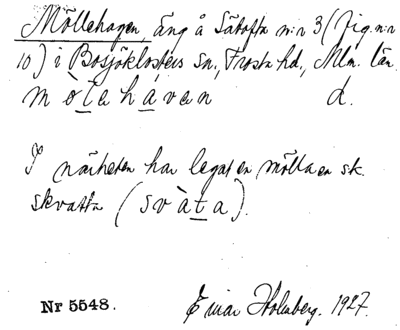 Möllehagen, äng å Sätofta n:r 3 (fig. n:r
10) i Bosjöklosters sn, Frosta hd., Mlm. län.
mòtahávan d.
I närheten har legat en mölla en sk.
skvatta (svàta).
Nr 5548. Einar Holmberg. 1927.